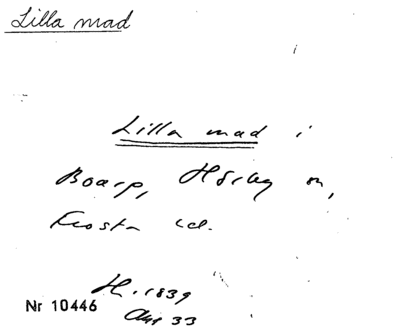 Lilla mad
Lilla mad i
Boarp, Hörby sn,
Frosta hd.
H. 1839
Akt 33
Nr 10446